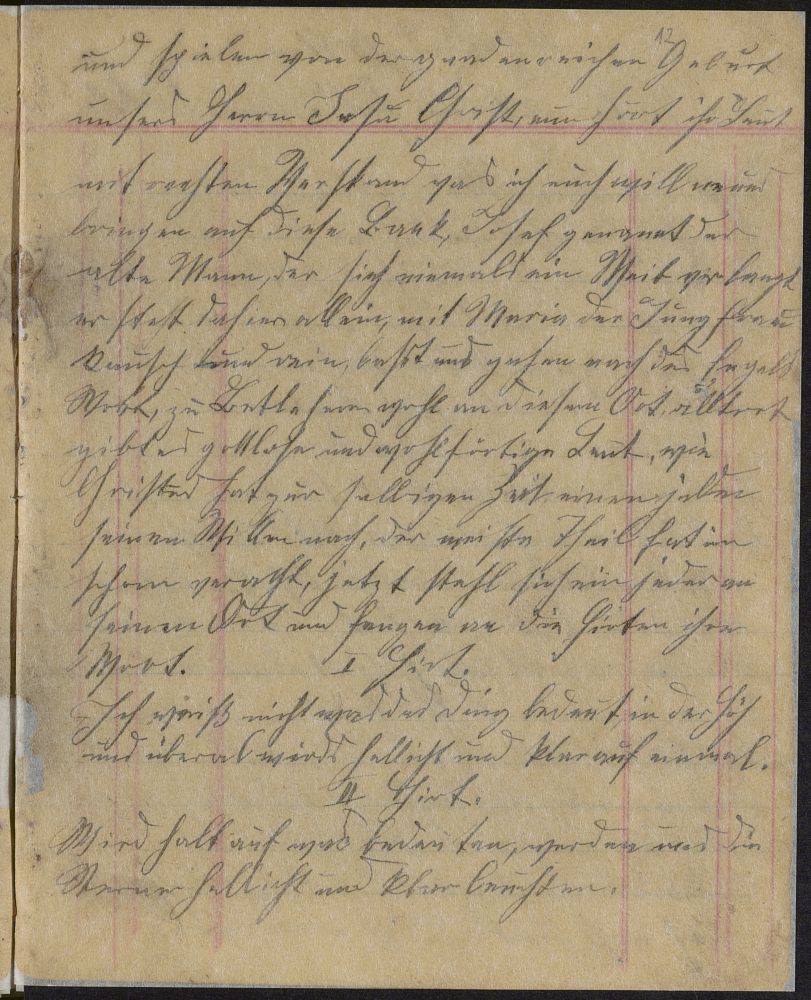 12
und spielen von der gnadenreichen Geburt
unsers Herrn Jesu Christ, nun hört ihr Leut
mit rechten Verstand was ich euch will neues
bringen auf diese Bank, Josef genannt der
alte Mann, der sich niemals ein Weib verlangt
er steht daher allein, mit Maria der Jungfrau
keusch und rein, und gehen nach des Engels
Wort, zu Betlehem wohl an diesem Ort,
gibt es gottlose und Leut, wie
Christus hat zur selbigen Zeit einen jeden
seinen Willen nach, der meiste Theil hat in
schon veracht, jetzt stehl sich ein jeder an
seinen Ort und fangen an die Hirten ihre
Wort. I Hirt.
Ich weiß nicht was das Ding bedeut, in der Höh
und überal wirds hellicht und klar auf einmal.
II Hirt.
Wird halt auf was bedeuten, werden uns die
Sterne hellicht und klar leuchten.